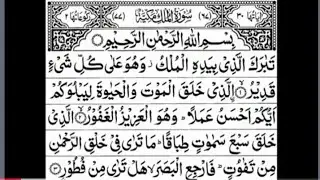 اٰیَاتُهَا ۳۰ (۶۷) سُوْرَةُ الْمُلْكِ مَكِّيَّةٌ (۷۷) رُكُوْعَاتُهَا ۲
بِسْمِ اللّٰهِ الرَّحْمٰنِ الرَّحِیْمِ
تَبٰرَكَ الَّذِیْ بِیَدِهِ الْمُلْكُ وَهُوَ عَلٰی كُلِّ شَیْءٍ
قَدِیْرُ ۙ﴿۱﴾ الَّذِیْ خَلَقَ الْمَوْتَ وَالْحَیٰوةَ لِیَبْلُوَكُمْ
اَیُّكُمْ اَحْسَنُ عَمَلًا ؕ وَهُوَ الْعَزِیْزُ الْغَفُوْرُ ۙ﴿۲﴾ الَّذِیْ
خَلَقَ سَبْعَ سَمٰوٰتٍ طِبَاقًا ؕ مَا تَرٰی فِیْ خَلْقِ الرَّحْمٰنِ
مِنْ تَفٰوُتٍ ؕ فَارْجِعِ الْبَصَرَ ۙ هَلْ تَرٰی مِنْ فُطُوْرٍ ﴿۳﴾